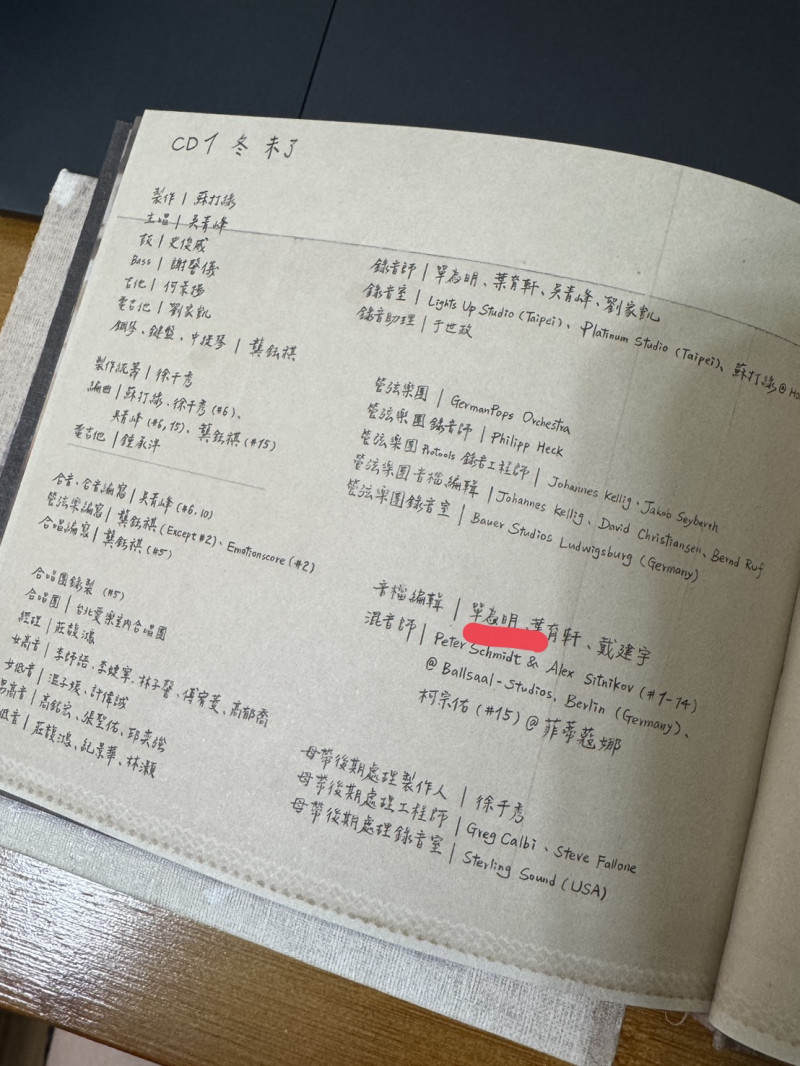 CD1 冬 未了
製作 | 蘇打綠
主唱 | 吳青峰
鼓 | 史俊威
Bass | 謝馨儀
吉他 | 何景揚
電吉他 | 劉家凱
鋼琴、鍵盤、中提琴 | 龔鈺祺
製作統籌 | 徐千秀
編曲 | 蘇打綠、徐千秀 (#6)、
吳青峰 (#6, 15)、龔鈺祺 (#15)
電吉他 | 鍾承洋
合音、合音編寫 | 吳青峰 (#6, 10)
管弦樂編寫 | 龔鈺祺 (Except #2)、Emotionscore (#2)
合唱編寫 | 龔鈺祺 (#5)
合唱團錄製 (#5)
合唱團 | 台北愛樂室內合唱團
經理 | 莊馥鴻
女高音 | 李師語、李婕寧、林子馨、傅宥菱、高郁喬
女低音 | 溫子媛、許偉誠
男高音 | 高銘宏、張聖佑、邱奕
低音 | 莊馥鴻、阮景華、林灝
錄音師 | 單為明、葉育軒、吳青峰、劉家凱
錄音室 | Lights Up Studio (Taipei)、Platinum Studio (Taipei)、蘇打綠@Ho
錄音助理 | 于世政
管弦樂團 | GermanPops Orchestra
管弦樂團錄音師 | Philipp Heck
管弦樂團 Protools 錄音工程師 | Johannes Kellig、Jakob Seyberth
管弦樂團音檔編輯 | Johannes Kellig、David Christiansen、Bernd Ruf
管弦樂團錄音室 | Bauer Studios Ludwigsburg (Germany)
音檔編輯 | 單為明、葉育軒、戴建宇
混音師 | Peter Schmidt & Alex Sitnikov (#1-14)
@ Ballsaal-Studios, Berlin (Germany)、
柯宗佑 (#15) @ 菲蒂蔻娜
母帶後期處理製作人 | 徐千秀
母帶後期處理工程師 | Greg Calbi、Steve Fallone
母帶後期處理錄音室 | Sterling Sound (USA)